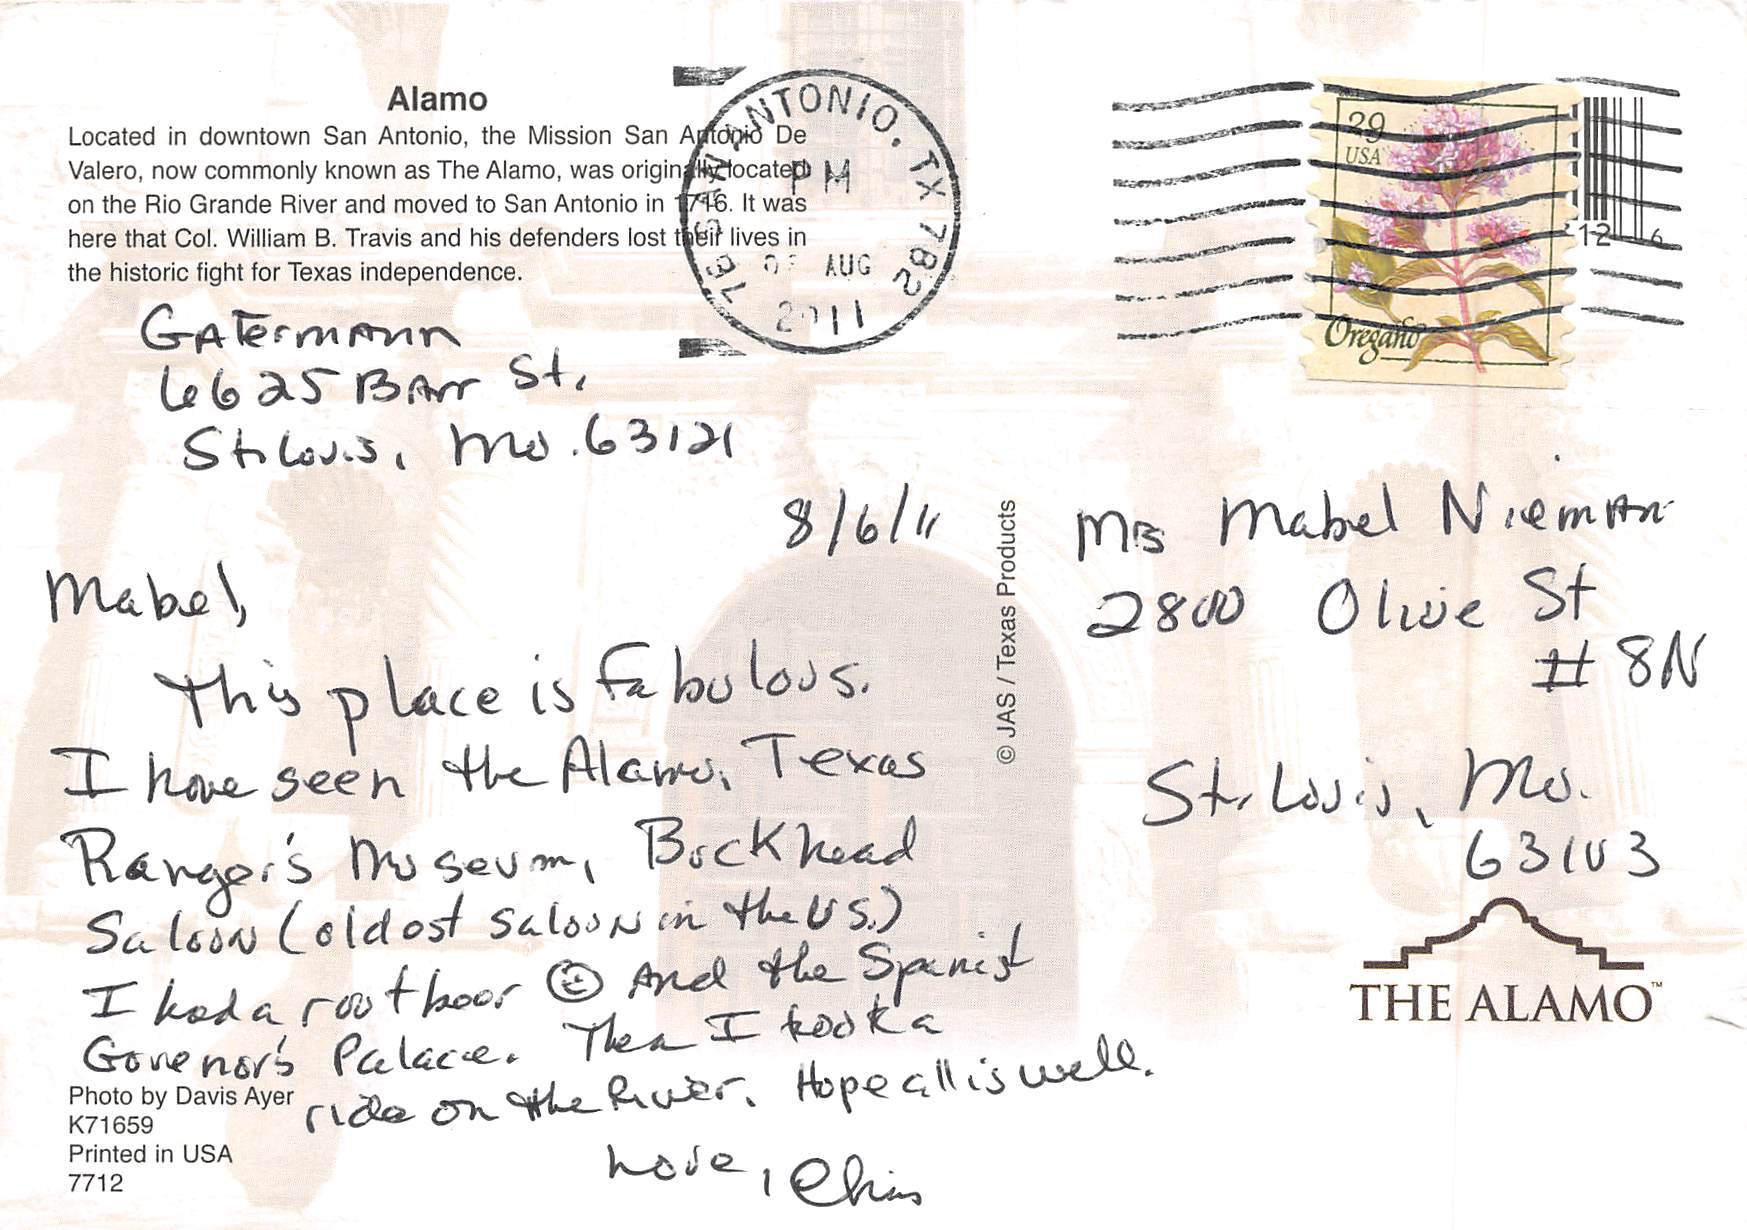 Alamo
Located in downtown San Antonio, the Mission San Antonio De
Valero, now commonly known as The Alamo, was originally located
on the Rio Grande River and moved to San Antonio in 1716. It was
here that Col. William B. Travis and his defenders lost their lives in
the historic fight for Texas independence.
ANTONIO, TX 782
PM
AUG
2011
29
USA
Oregano
Gatermann
6625 Barr St.
St. Louis, Mo. 63121
8/6/11
Mabel,
This place is fabulous.
I have seen the Alamo, Texas
Ranger's Museum, Buckhead
Saloon (oldest saloon in the US.)
I had a root beer ☺ And the Spanish
Govenor's Palace. Then I took a
ride on the River. Hope all is well.
Love, Chris
Photo by Davis Ayer
K71659
Printed in USA
7712
© JAS / Texas Products
Mrs Mabel Nieman
2800 Olive St
# 8N
St. Louis, Mo.
63103
THE ALAMO™